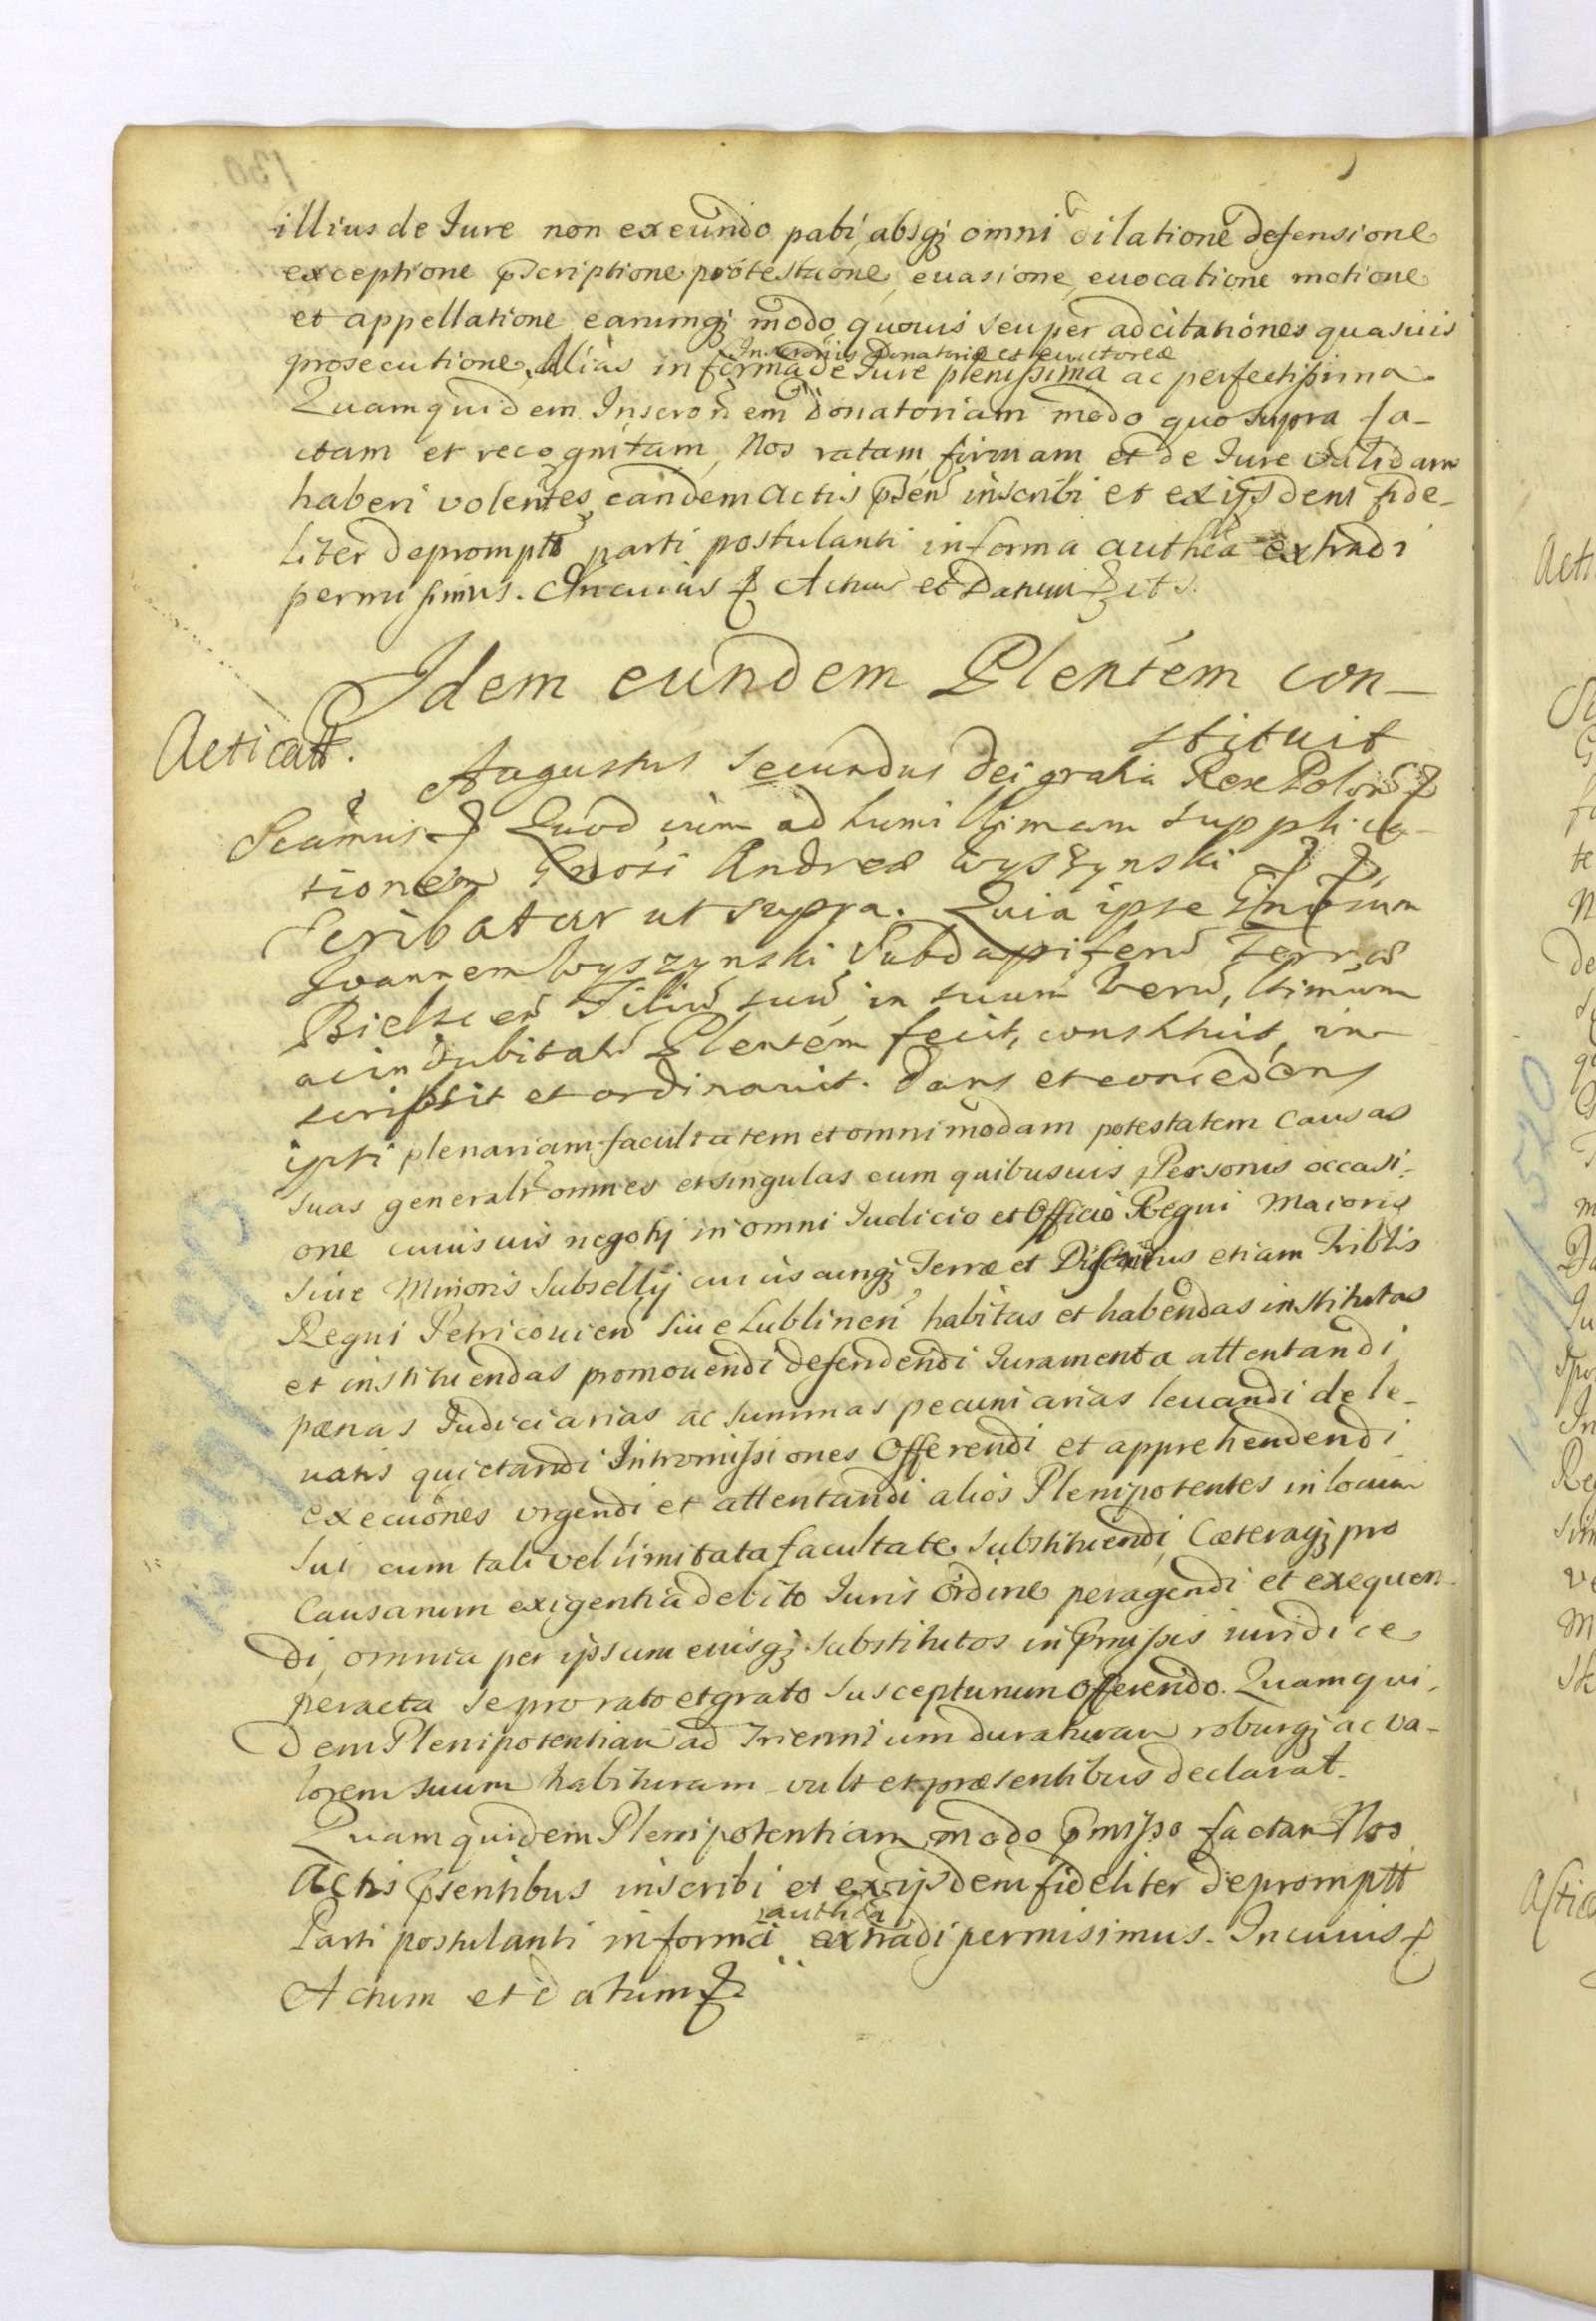 illius de Jure non exeundo pati absq3 omni dilatione defensione
exceptione pscriptione protestaone, euasione, euocatione motione
et appellatione earumq3 modo quouis seu per adcitationes quasuis
prosecutione. Alias in forma Inscrõnis Donatoriæ et euictoreæ de Jure plenissima ac perfectissima
Quamquidem Inscrõnem Donatoriam modo quo supra fa-
ctam et recognitam, Nos ratam firmam et de Jure validam
haberi volentes eandem Actis psen inscribi et exijsdem fide-
liter deprompt parti postulanti informa authca extradi
permisimus. In cuius Actum et Datum ut s.
Idem eundem Plentem con-
stituit
Acticatt.
Augustus Secundus dei gratia Rex Polon
Seamus Quod cum ad humillimam supplica-
tionem Gnosi Andreæ Wyszynski
Scribatur ut supra. Quia ipse Gnosum
Joannem Wyszynski Subdapiferu Terræ
Bielscen Filiu suu in suum Veru, ltimum
ac indubitatu Plentem fecit, constituit, in-
scripsit et ordinauit. Dans et concedens
ipsi plenariam facultatem et omnimodam potestatem Causas
suas generalr omnes et singulas cum quibusuis Personis occasi-
one cuiusuis negotij in omni Iudicio et Officio Regni Maioris
siue Minoris Subsellij cuiuscunq3 Terræ et Districtus etiam Triblis
Regni Petricouien siue Lublinen habitas et habendas institutas
et instituendas promouendi defendendi Iuramenta attentandi
pænas Judiciarias ac summas pecuniarias leuandi de le-
uatis quietandi Intromissiones Offerendi et apprehendendi
execuónes vrgendi et attentandi alios Plenipotentes in locum
sui cum tali vel limitata facultate substituendi, Cæteraq3 pro
Causarum exigentia debito Iuris ordine peragendi et exequen-
di, omnia per ipsum eiusq3 substitutos in pmissis iuridice
peracta se pro rato et grato suscepturum offerendo. Quamqui-
dem Plenipotentiam ad Triennium duraturam roburq3 ac va-
lorem suum habituram vult et præsentibus declarat.
Quamquidem Plenipotentiam modo pmisso factam Nos
Actis psentibus inscribi et exijsdem fideliter depromptt
Parti postulanti informa authca extradi permisimus. In cuius
Actum et datum